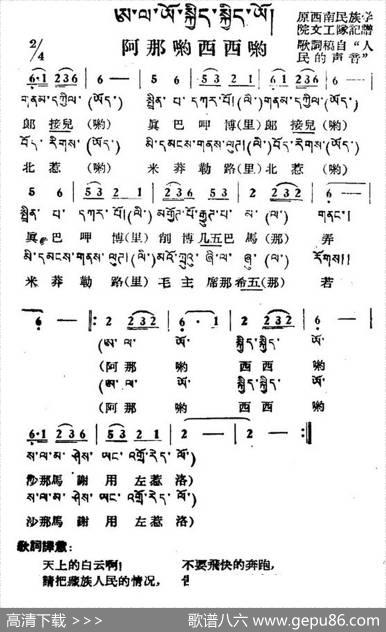 ཨ་ལ་ཡོ་སྐྱིད་སྐྱིད་ཡོ།
阿那喲西西喲
原西南民族学
院文工隊記譜
歌詞稿自“人
民的声音”
2/4
6·1 236 | 6 — | 5 5 | 53 2 1 | 6·1 236 | 6 — |
གནམ་དཀྱིལ་(ཡོད་) སྤྲིན་པ་དཀར་པོ།(ལི་)གནམ་དཀྱིལ་(ཡོད་)
郎接兒(喲) 眞巴呷博(里)郎接兒(喲)
བོད་རིགས་(ཡོད་) མི་དམངས་གནས་ལུགས།(ལི་)བོད་རིགས་(ཡོད་)
北惹(喲) 米莽勒路(里)北惹(喲)
5 6 | 53 2 1 | 2 236 53 | 2 232 | 6 — |
སྤྲིན་པ་དཀར་པོ།(ལི་)མགྱོགས་པོ་རྒྱུག་པ་མ་(ལ་) གནང་།
眞巴呷博(里)削博几五巴馬(那) 弄
མི་དམངས་གནས་ལུགས།(ལི་)
米莽勒路(里)毛主席那希五(那) 若
6 — ‖: 2 232 | 6 · 1 | 2 232 | 6 — |
(ཨ་ལ་ ཡོ་ སྐྱིད་སྐྱིད་ ཡོ་
(阿那 喲 西西 喲
(ཨ་ལ་ ཡོ་ སྐྱིད་སྐྱིད་ ཡོ་
(阿那 喲 西西 喲
6·1 236 | 53 2 1 | 2 — | 2 — :‖
ས་ལ་མ་ཤེས་ཡང་འགྲོ་རེད་ལོ་)
沙那馬 謝用左惹 洛)
ས་ལ་མ་ཤེས་ཡང་འགྲོ་རེད་ལོ་)
沙那馬 謝用左惹 洛)
歌詞譯意：
天上的白云啊！ 不要飛快的奔跑，
請把藏族人民的情况，
高清下载 >>> 歌谱八六 www.gepu86.com